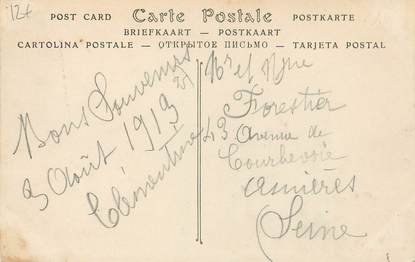 12€
POST CARD Carte Postale POSTKARTE
BRIEFKAART - POSTKAART
CARTOLINA POSTALE - ОТКРЫТОЕ ПИСЬМО - TARJETA POSTAL
Bons Souvenirs
3 Août 1913
Clémentine
Mr et Mme
Forestier
43 Avenue de
Courbevoie
Asnières
(Seine